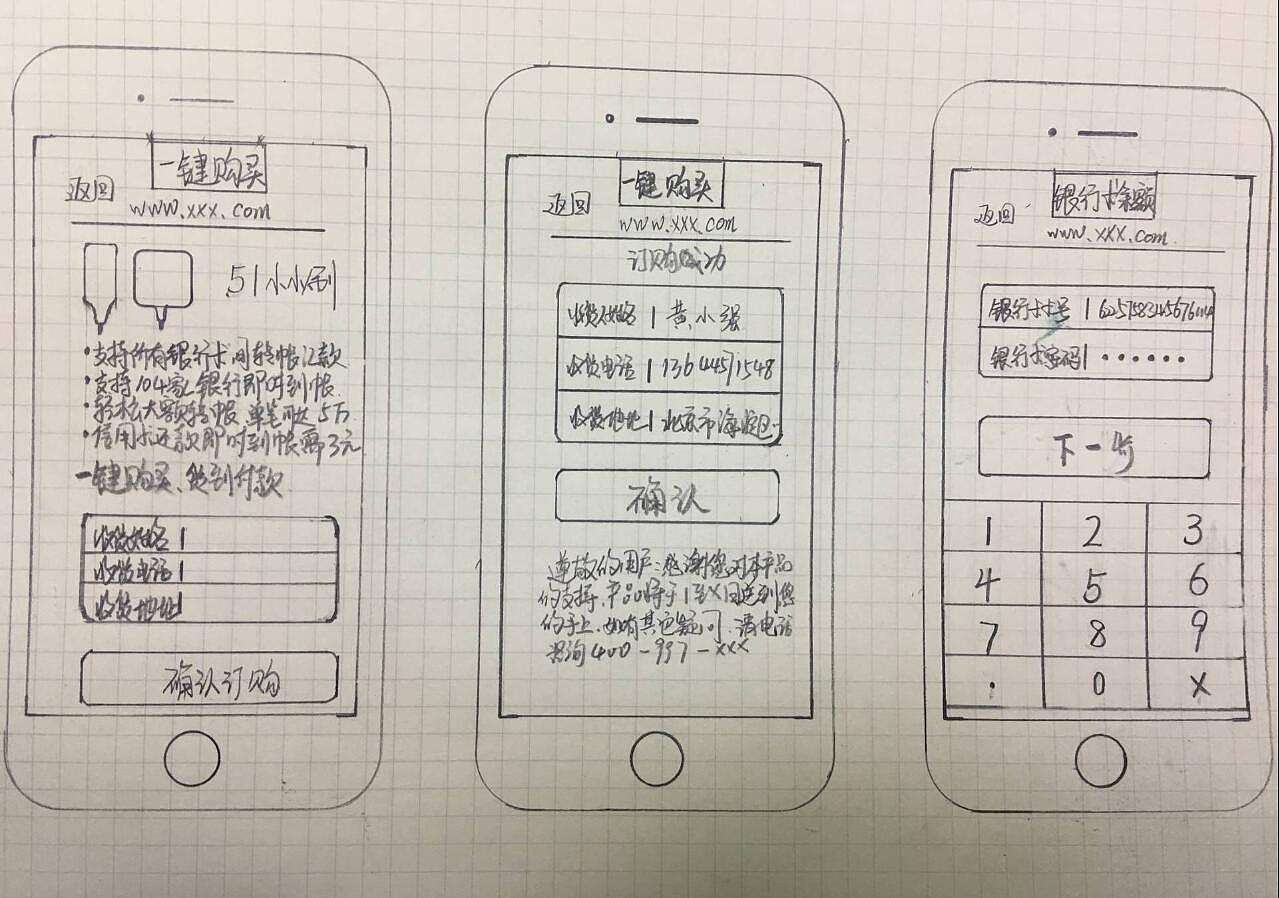 一键购买
返回
www.xxx.com
51小小刷
·支持所有银行卡间转帐汇款
·支持104家银行即时到帐
·轻松大额转帐,单笔可达5万
·信用卡还款即时到帐需3元
一键购买、货到付款
收货姓名
收货电话
收货地址
确认订购
一键购买
返回
www.xxx.com
订购成功
收货姓名 黄小强
收货电话
收货地址 北京市海淀区
确认
尊敬的用户:感谢您对本产品
的支持,产品将于1至X日送到您
的手上,如有其它疑问,请电话
咨询400-997-xxx
银行卡余额
返回
www.xxx.com
银行卡卡号
银行卡密码 ······
下一步
1 2 3
4 5 6
7 8 9
· 0 X